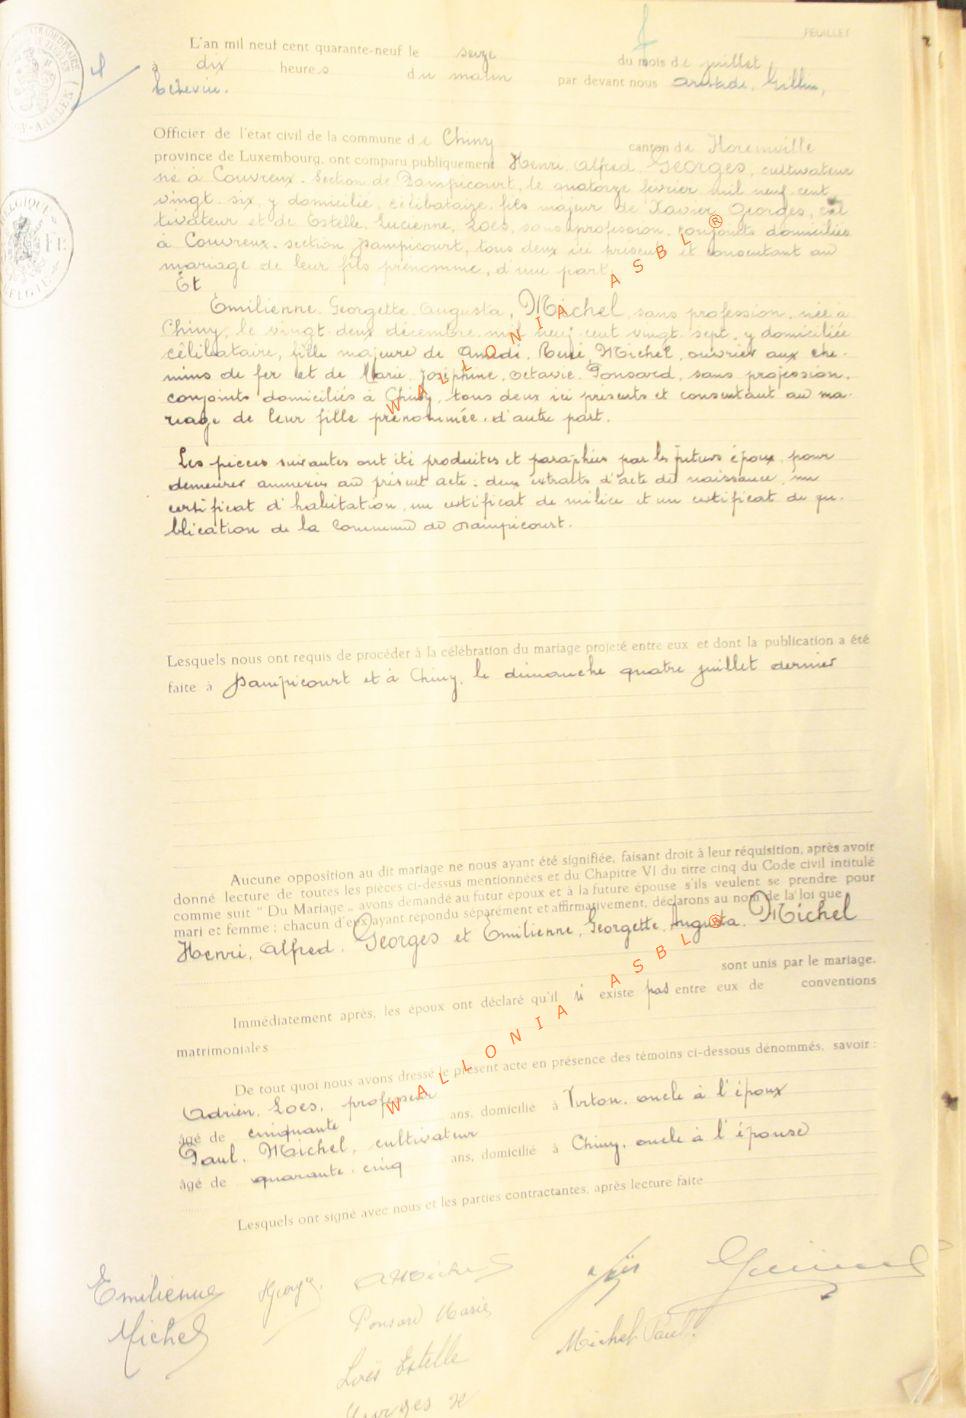 FEUILLET
L'an mil neuf cent quarante-neuf le seize du mois de juillet,
à dix heures du matin par devant nous
Echevin.
Officier de l'état civil de la commune de Chiny canton de Florenville
province de Luxembourg, ont comparu publiquement Henri, Alfred, Georges, cultivateur
né à Couvreux. Section de Dampicourt, le quatorze février mil neuf cent
vingt six, y domicilié, célibataire, fils majeur de Xavier Georges, cul
tivateur et de Estelle, Lucienne, Loes, sans profession, conjoints domiciliés
à Couvreux, section Dampicourt, tous deux ici présents et consentant au
mariage de leur fils prénommé, d'une part
Et
Emilienne, Georgette, Augusta, Michel, sans profession, née à
Chiny, le vingt deux décembre mil neuf cent vingt sept, y domiciliée
célibataire, fille majeure de Amédé, René, Michel, ouvrier aux che-
mins de fer et de Marie, Joséphine, Octavie, Ponsard, sans profession,
conjoints domiciliés à Chiny, tous deux ici présents et consentant au ma-
riage de leur fille prénommée, d'autre part.
Les pièces suivantes ont été produites et paraphées par les futurs époux pour
demeurer annexées au présent acte: deux extraits d'acte de naissance, un
certificat d'habitation, un certificat de milice et un certificat de pu-
blication de la Commune de Dampicourt.
Lesquels nous ont requis de procéder à la célébration du mariage projeté entre eux et dont la publication a été
faite à Dampicourt et à Chiny, le dimanche quatre juillet dernier
Aucune opposition au dit mariage ne nous ayant été signifiée, faisant droit à leur réquisition, après avoir
donné lecture de toutes les pièces ci-dessus mentionnées et du Chapitre VI du titre cinq du Code civil intitulé
comme suit " Du Mariage „ avons demandé au futur époux et à la future épouse s'ils veulent se prendre pour
mari et femme ; chacun d'eux ayant répondu séparément et affirmativement, déclarons au nom de la loi que
Henri, Alfred, Georges et Emilienne, Georgette, Augusta, Michel
sont unis par le mariage.
Immédiatement après, les époux ont déclaré qu'il n'existe pas entre eux de conventions
matrimoniales
De tout quoi nous avons dressé le présent acte en présence des témoins ci-dessous dénommés, savoir :
Adrien, Loes, professeur
âgé de cinquante ans, domicilié à Virton, oncle à l'époux
Paul, Michel, cultivateur
âgé de quarante-cinq ans, domicilié à Chiny, oncle à l'épouse
Lesquels ont signé avec nous et les parties contractantes, après lecture faite
Emilienne
Michel
Ponsard Marie
Michel Paul.
Loës Estelle
Georges X
WALLONIA ASBL ®
WALLONIA ASBL ®